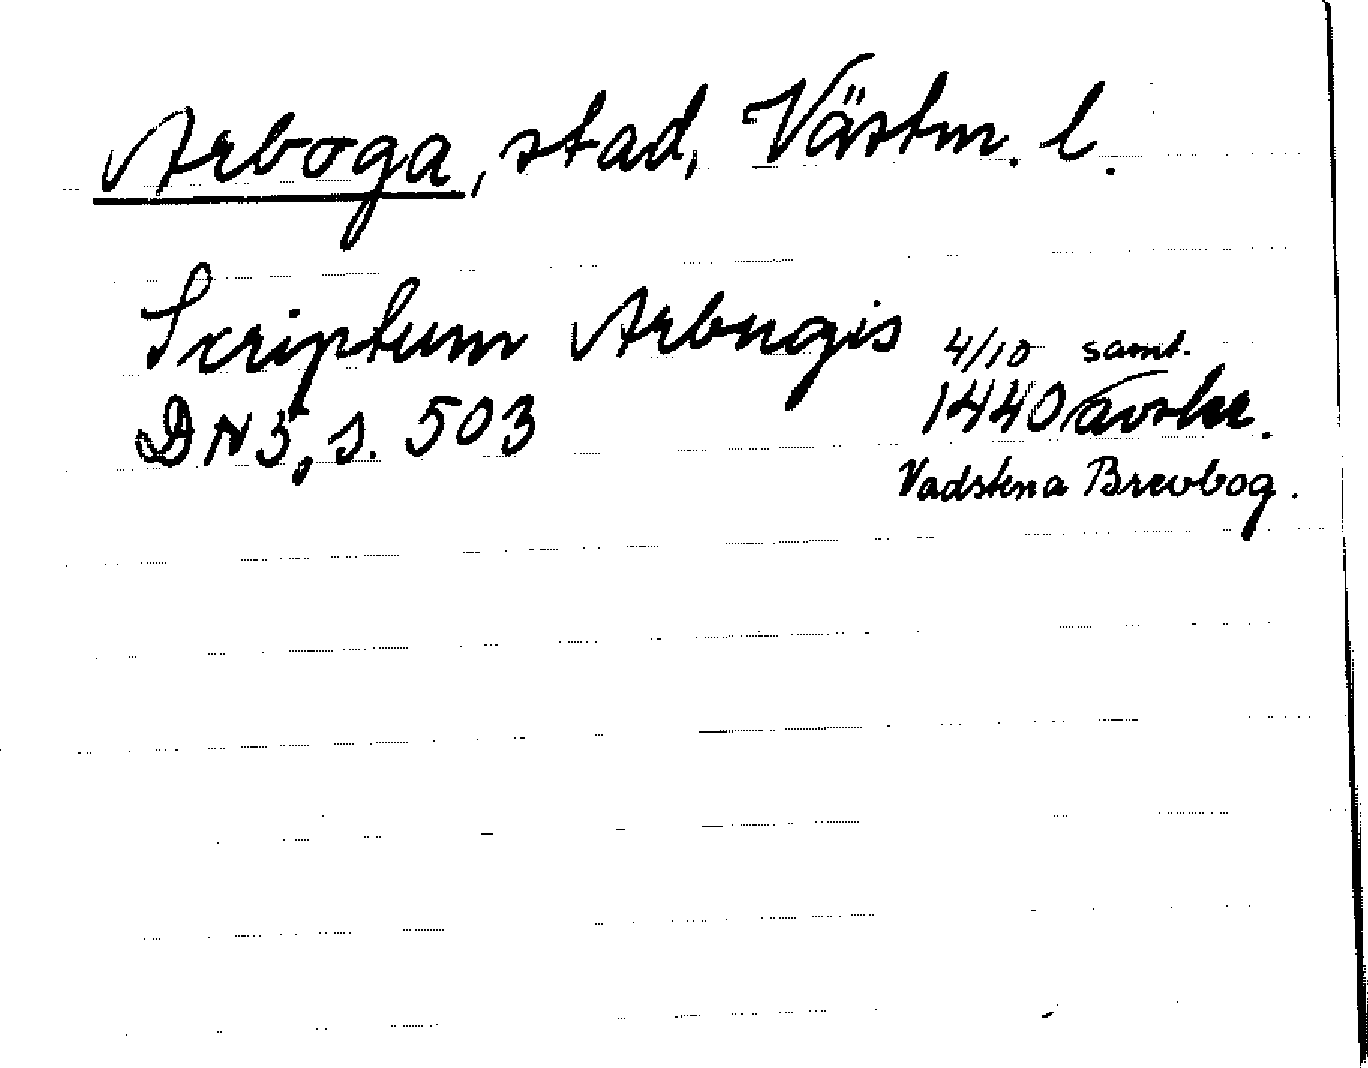 Arboga, stad, Västm. l.
Scriptum Arbugis 4/10 samt.
DN 5, s. 503 1440 avskr.
Vadstena Brevbog.